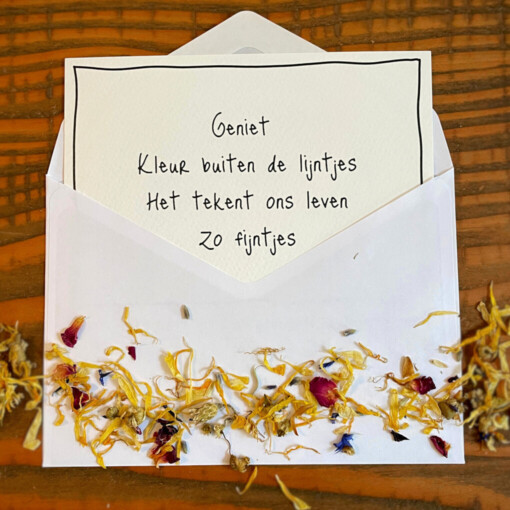 Geniet
Kleur buiten de lijntjes
Het tekent ons leven
zo fijntjes